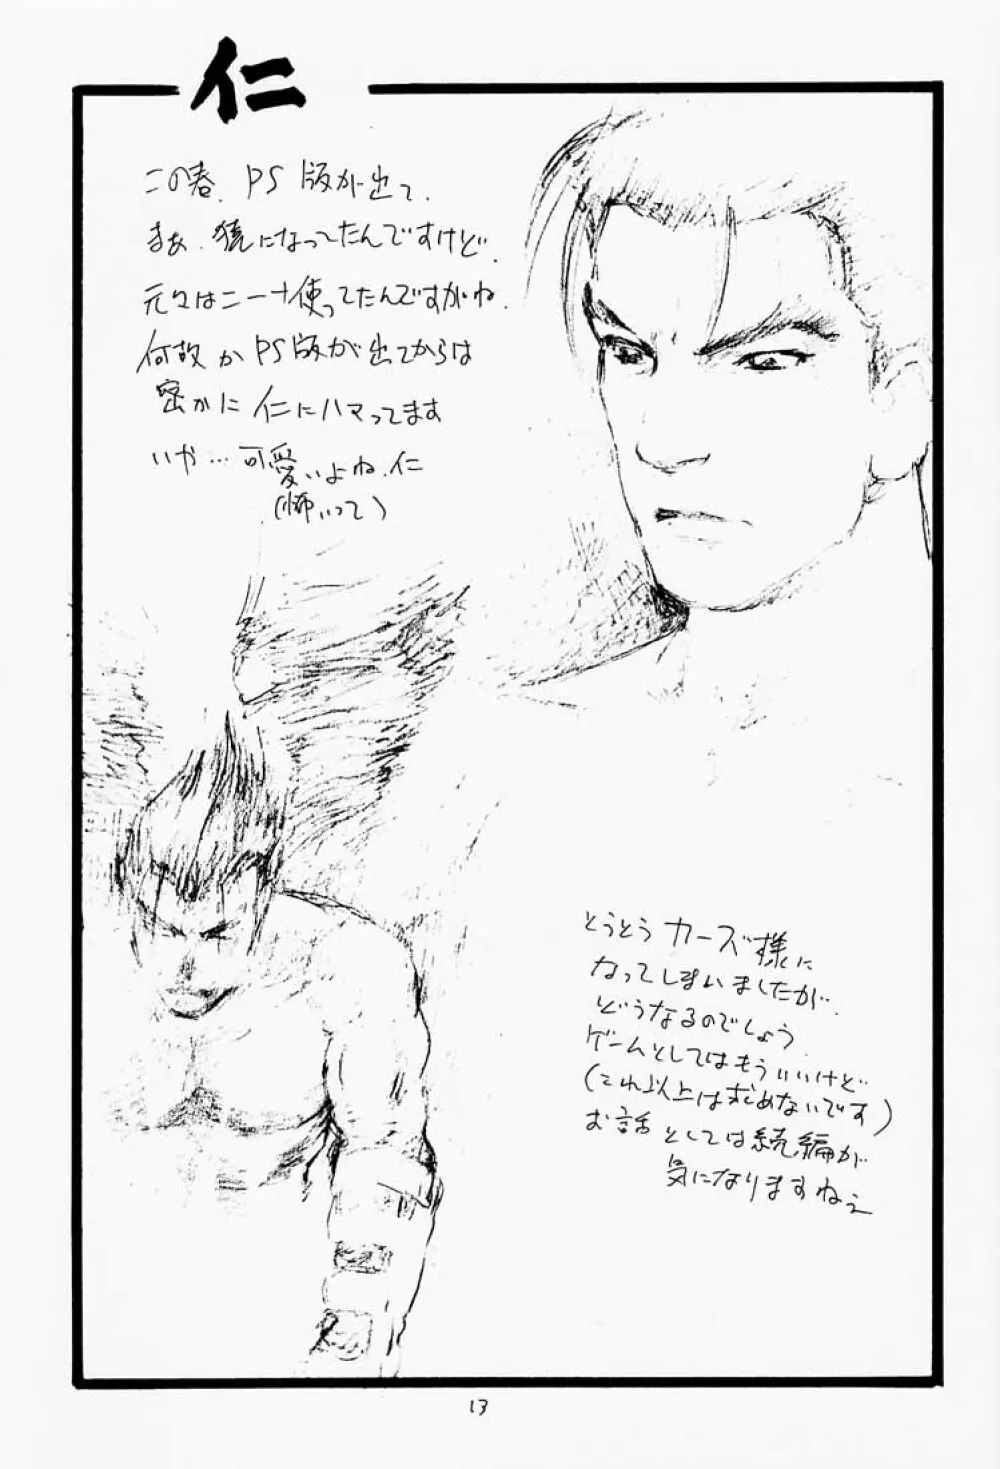 仁
この春、PS版が出て、
まあ、猿になってたんですけど、
元々はニーナ使ってたんですがね、
何故かPS版が出てからは
密かに仁にハマってます
いや…可愛いよね、仁
(怖いって)
とうとうカーズ様に
なってしまいましたが、
どうなるのでしょう
ゲームとしてはもういいけど
(これ以上は求めないです)
お話としては続編が
気になりますねぇ
13